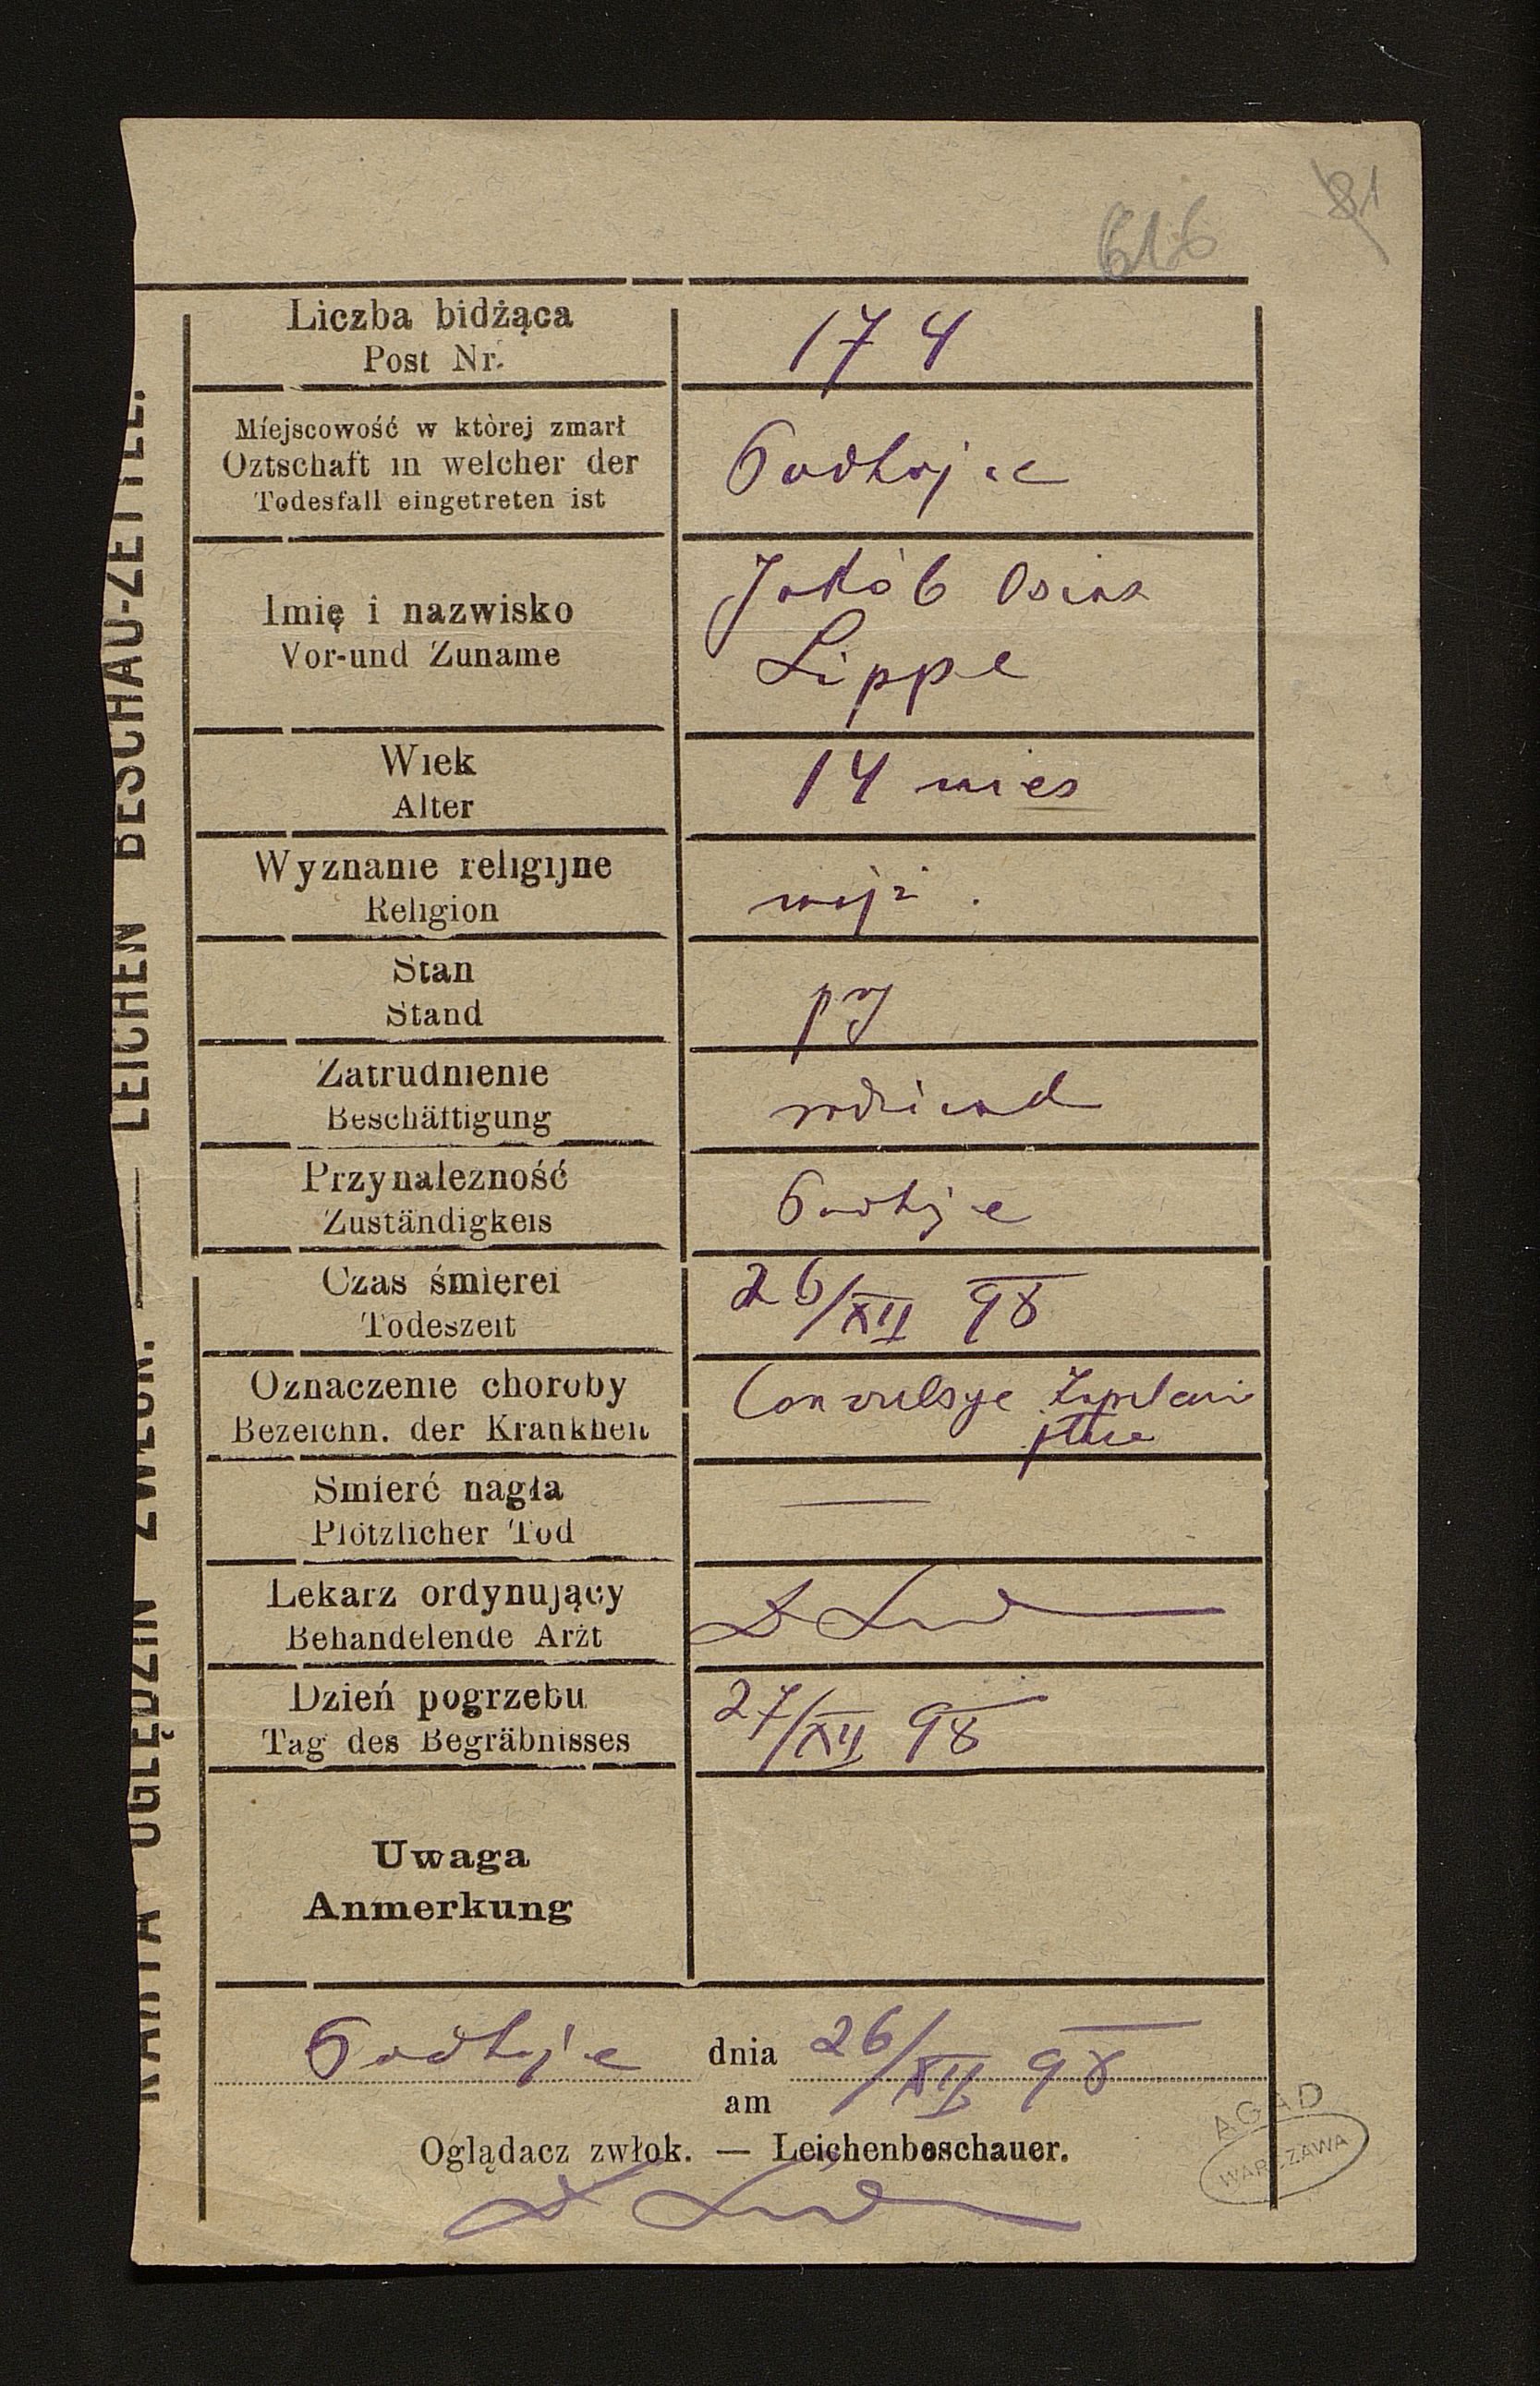 81
616
KARTA OGLĘDZIN ZWŁOK. — LEICHEN BESCHAU-ZETTEL.
Liczba bidżąca
Post Nr.
174
Miejscowość w której zmarł
Oztschaft in welcher der
Todesfall eingetreten ist
Imię i nazwisko
Vor-und Zuname
Jakób Osias
Lippe
Wiek
Alter
14 mies
Wyznanie religijne
Religion
mojż.
Stan
Stand
Zatrudnienie
Beschäftigung
Przynalezność
Zuständigkeis
Czas śmierei
Todeszeit
26/XII 98
Oznaczenie choroby
Bezeichn. der Krankheit
Convulsye Zapaleni
płuc
Smierć nagła
Plötzlicher Tod
—
Lekarz ordynujący
Behandelende Arżt
Dzień pogrzebu
Tag des Begräbnisses
27/XII 98
Uwaga
Anmerkung
dnia 26/XII 98
am
Oglądacz zwłok. — Leichenbeschauer.
AGAD
WARSZAWA